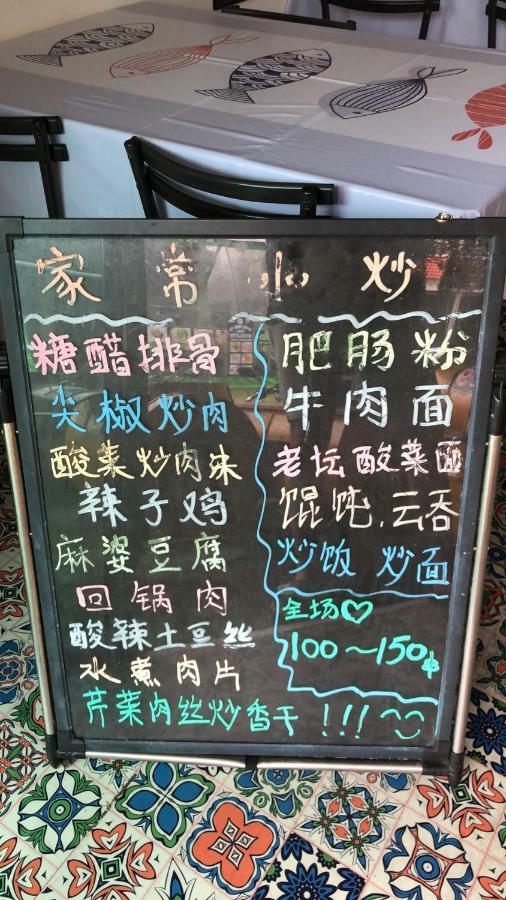 家常小炒
糖醋排骨
尖椒炒肉
酸菜炒肉沫
辣子鸡
麻婆豆腐
回锅肉
酸辣土豆丝
水煮肉片
芹菜肉丝炒香干!!!
肥肠粉
牛肉面
老坛酸菜面
馄饨.云吞
炒饭 炒面
全场♡
100~150฿